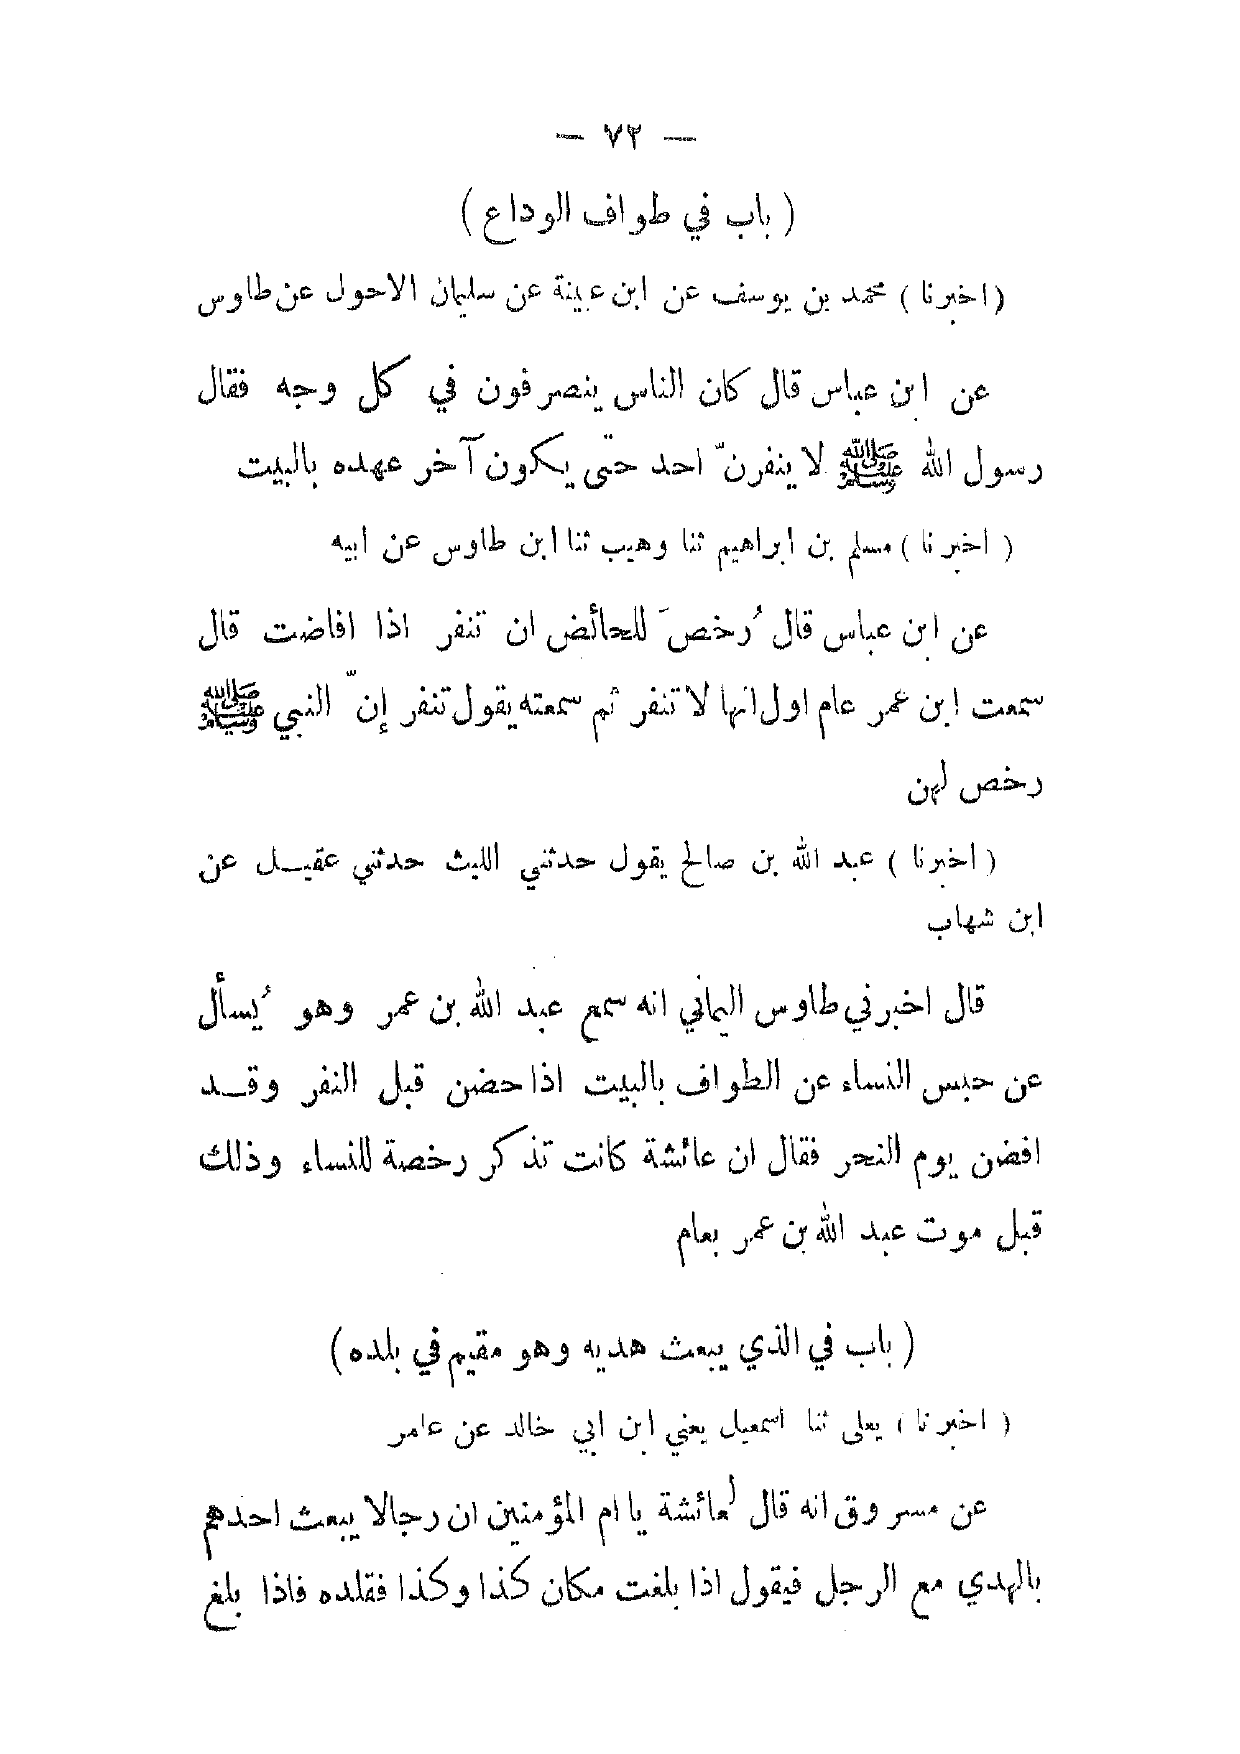 — ٧٢ —
( باب في طواف الوداع )
( اخبرنا ) محمد بن يوسف عن ابن عيينة عن سليمان الاحول عن طاوس
عن ابن عباس قال كان الناس ينصرفون في كل وجه فقال
رسول الله ﷺ لا ينفرنّ احد حتى يكون آخر عهده بالبيت
( اخبرنا ) مسلم بن ابراهيم ثنا وهيب ثنا ابن طاوس عن ابيه
عن ابن عباس قال رُخصَ للحائض ان تنفر اذا افاضت قال
سمعت ابن عمر عام اول انها لا تنفر ثم سمعته يقول تنفر إنّ النبي ﷺ
رخص لهن
( اخبرنا ) عبد الله بن صالح يقول حدثني الليث حدثني عقيـل عن
ابن شهاب
قال اخبرني طاوس اليماني انه سمع عبد الله بن عمر وهو يُسأل
عن حبس النساء عن الطواف بالبيت اذا حضن قبل النفر وقـد
افضن يوم النحر فقال ان عائشة كانت تذكر رخصة للنساء وذلك
قبل موت عبد الله بن عمر بعام
( باب في الذي يبعث هديه وهو مقيم في بلده )
( اخبرنا ) يعلى ثنا اسمعيل يعني ابن ابي خالد عن عامر
عن مسروق انه قال لعائشة يا ام المؤمنين ان رجالا يبعث احدهم
بالهدي مع الرجل فيقول اذا بلغت مكان كذا وكذا فقلده فاذا بلغ